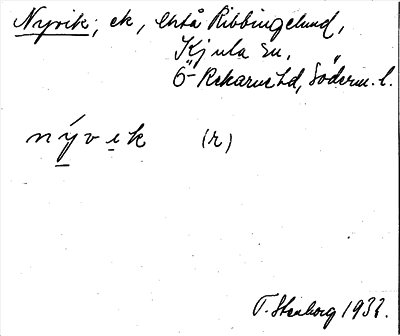 Nyvik, ek, Ristå Ribbingelund,
Kjula sn,
Ö-Rekarne hd, Söderm. l.
nývik (r)
T. Stenborg 1933.